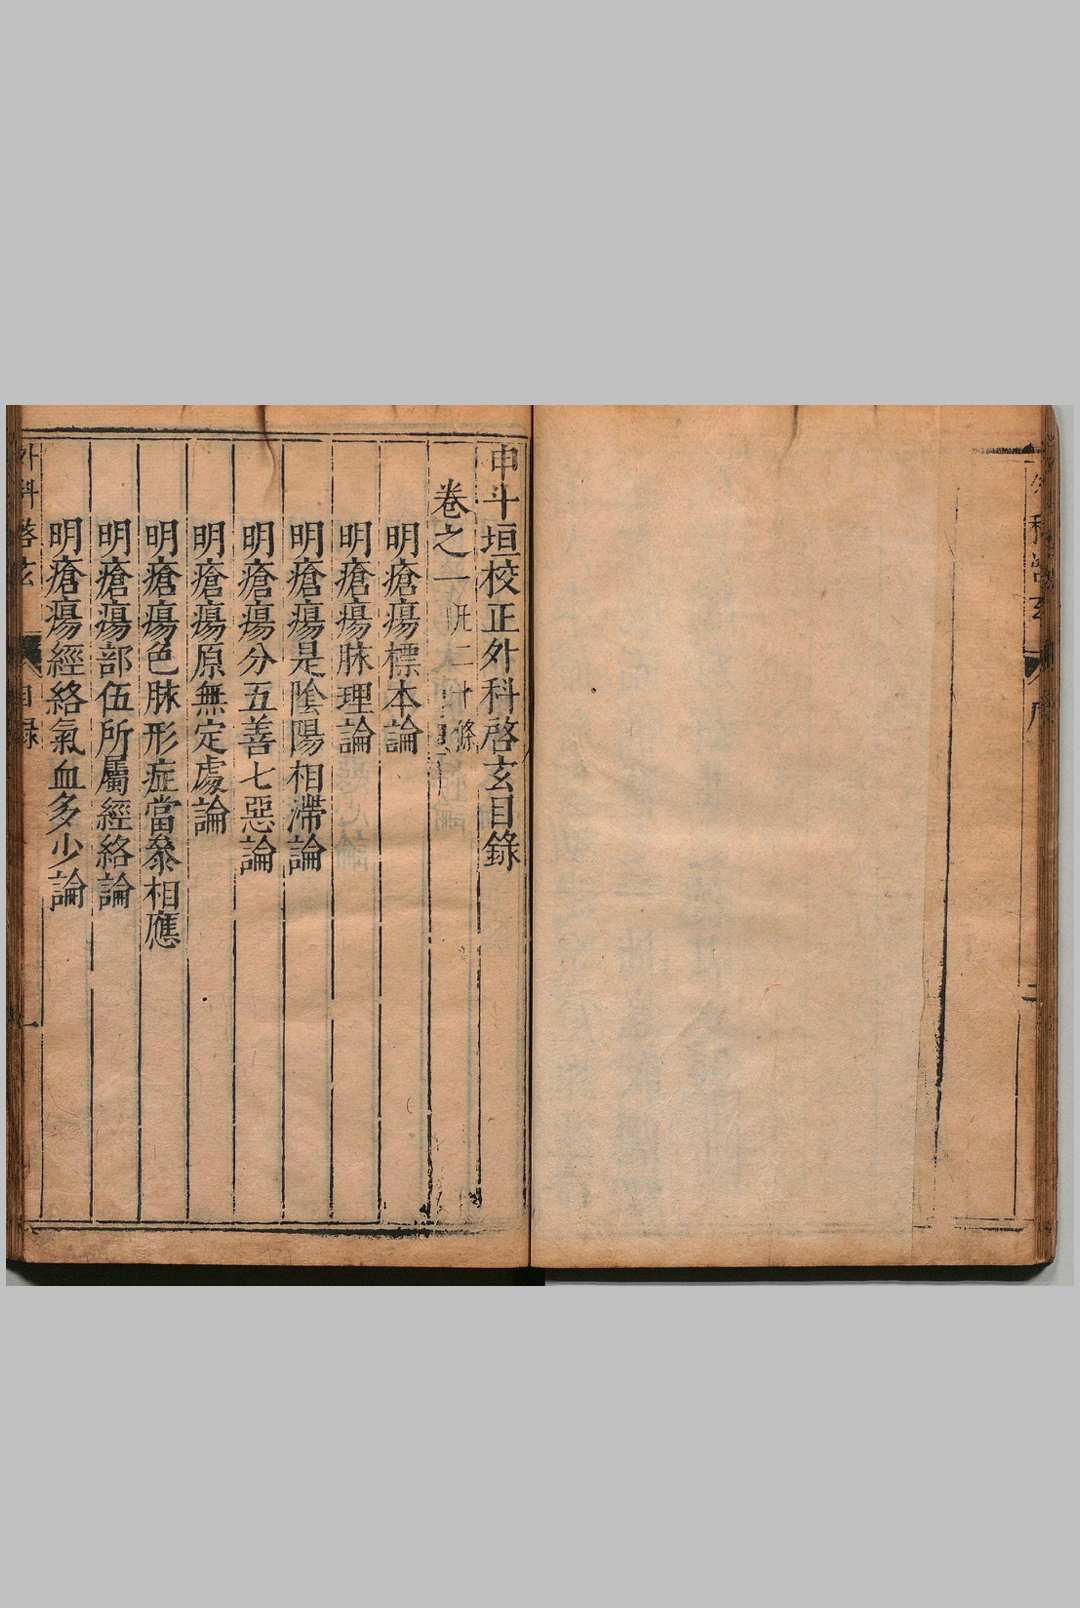 申斗垣校正外科啓玄目錄
卷之一
明瘡瘍標本論
明瘡瘍脉理論
明瘡瘍是陰陽相滯論
明瘡瘍分五善七惡論
明瘡瘍原無定處論
明瘡瘍色脉形症當叅相應
明瘡瘍部伍所屬經絡論
明瘡瘍經絡氣血多少論
外科啓玄 目錄 一